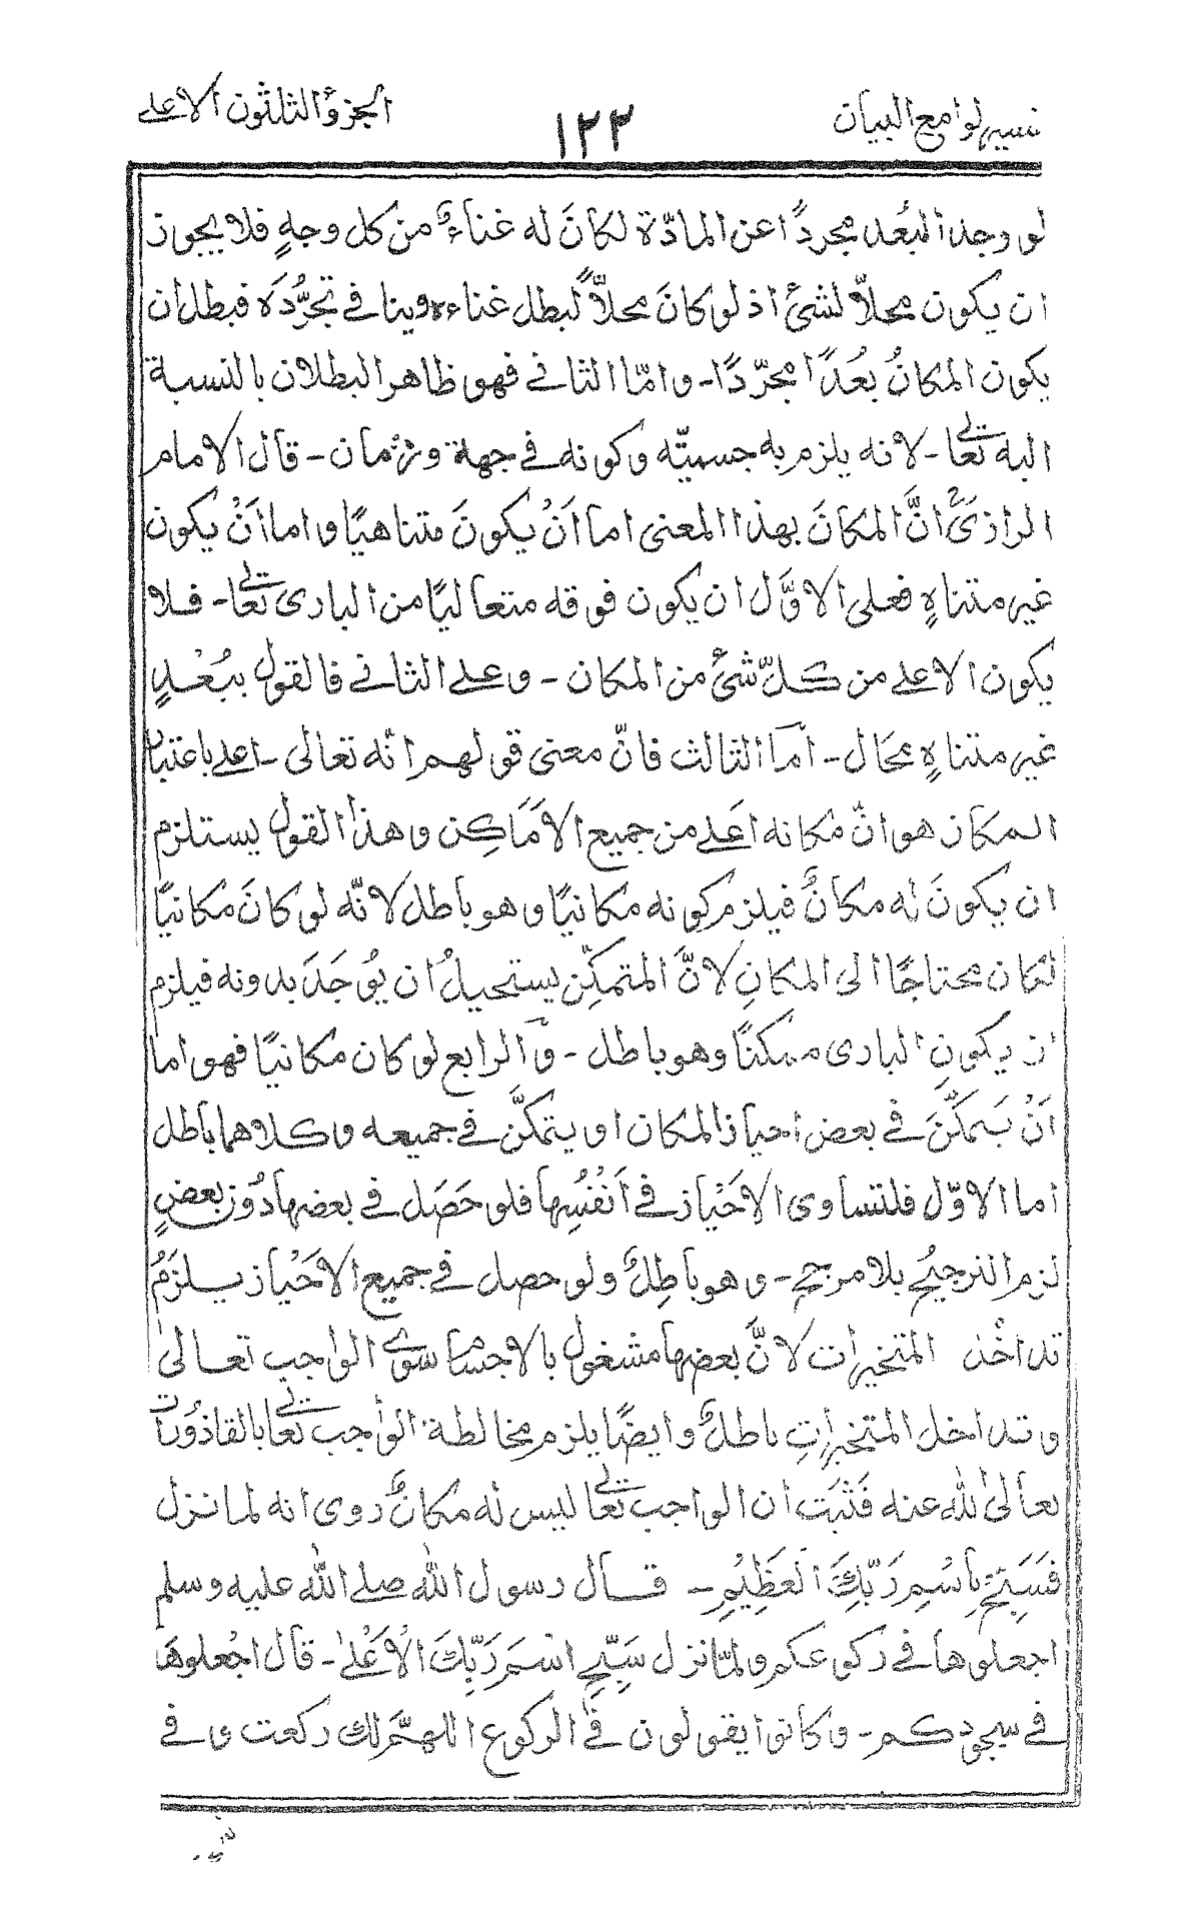 تفسير لوامع البيان ١٢٣ الجزؤ الثلثون الاعلى
لو وجد البُعد مجردًا عن المادّة لكانَ له غناءٌ من كل وجهٍ فلا يجوز
ان يكون محلاّ لشئ اذ لو كانَ محلاًّ لبطل غناءه وينافي تجرُّدَه فبطل ان
يكون المكانُ بعُدًا مجرّدًا۔ وامّا الثاني فهو ظاهر البطلان بالنسبة
اليه تعالى۔ لانه يلزم به جسميّته وكونه في جهة وزمان۔ قال الامام
الرازىؒ انَّ المكانَ بهذا المعنى اما اَنْ يكونَ متناهيًا واما اَنْ يكون
غير متناهٍ فعلى الاوَّل ان يكون فوقه متعاليًا من البارى تعالى۔ فلا
يكون الاعلى من كلّ شئ من المكان۔ وعلى الثاني فالقول ببُعْدٍ
غير متناهٍ محال۔ امّا الثالث فانّ معنى قولهم انّه تعالى۔ اعلى باعتبار
المكان هو انّ مكانه اعَلى من جميع الامَاكِن وهذا القول يستلزم
ان يكونَ له مكانٌ فيلزم كونه مكانيًا وهو باطل لانّه لو كانَ مكانيًا
لكان محتاجًا الى المكانِ لانَّ المتمكّن يستحيلُ ان يوُجَدَ بدونه فيلزم
ان يكونِ البارى ممكنًا وهو باطل۔ وآلرابع لو كان مكانيًا فهو اما
اَنْ يَتمكَّنَ في بعض احياز المكان او يتمكّن في جميعه وكلاهما باطل
اما الاوّل فلتساوى الاحَياز في اَنْفُسِها فلو حَصَل في بعضها دُون بعضٍ
لزم الترجيُح بلا مرجح۔ وهو باطِلٌ ولو حصل في جميع الاحَياز يلزَمُ
تداخُل المتحيرات لانَّ بعضها مشغول بالاجسام سوى الواجب تعالىٰ
وتداخل المتحيراتِ باطلٌ وايضًا يلزم مخالطة الواجب تعالى بالقاذورَات
تعالىٰ اللّٰه عنه فَثَبَت ان الواجب تعالى ليس له مكانٌ روى انه لما نزل
فَسَبِّحْ بِاسْمِ رَبِّكَ الْعَظِيْمِ۔ قال رسول اللّٰه صلے اللّٰه عليه وسلم
اجعلوها في ركوعكم ولمّا نزل سَبِّحِ اسْمَ رَبِّكَ الْاَعْلىٰ۔ قال اجْعلوهَا
في سجودكم۔ وكانوا يقولون في الركوع اللهمّ لك ركعت وفي